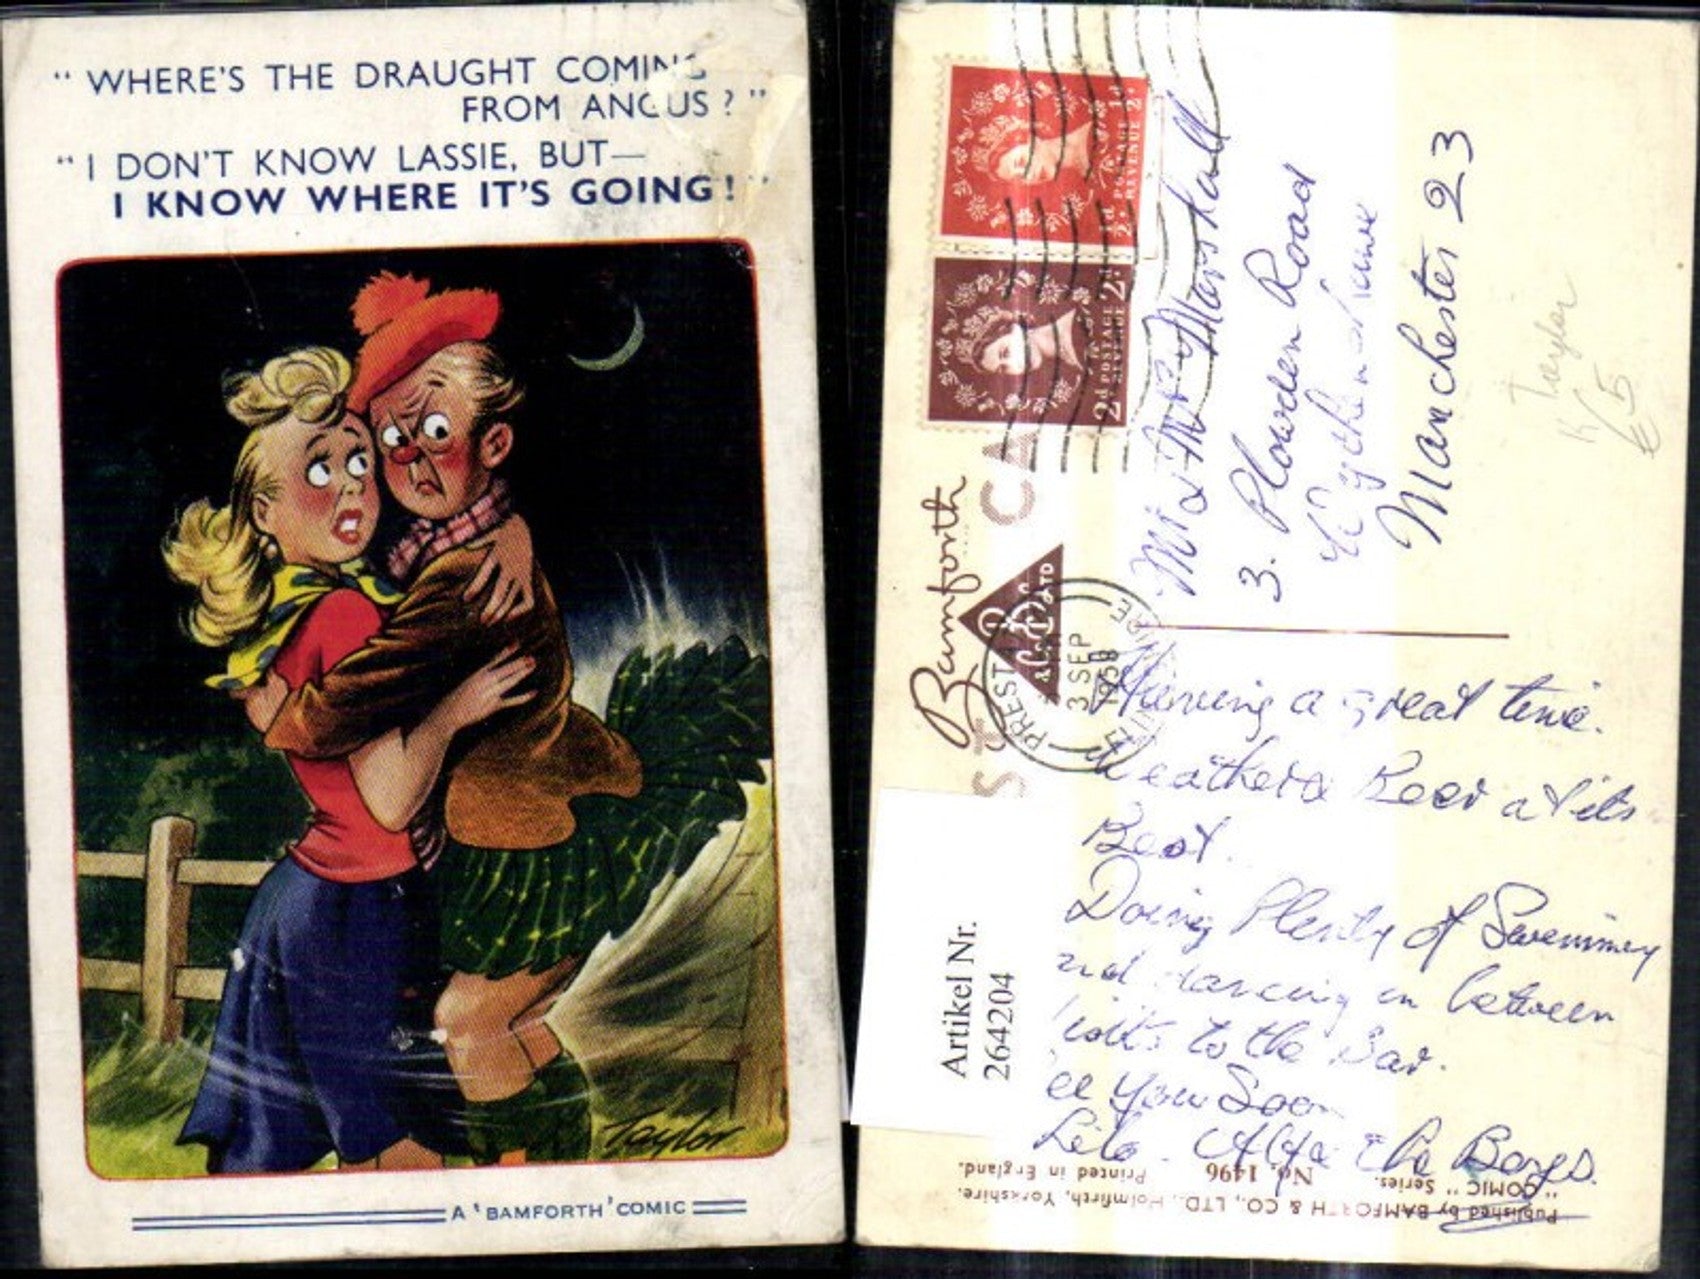 “ WHERE'S THE DRAUGHT COMING
FROM ANGUS ? ”
“ I DON'T KNOW LASSIE, BUT—
I KNOW WHERE IT'S GOING ! ”
Taylor
A 'BAMFORTH' COMIC
½d POSTAGE REVENUE ½d
2d POSTAGE REVENUE 2d
Bamforth
B & CO LTD
PRESTATYN
3 SEP
1958
FLINTSHIRE
Mr & Mrs Marshall
3. Plowden Road
Wythenshawe
Manchester 23
Taylor
K
€5
Having a great time.
Weather & Beer at its
Best.
Doing Plenty of Swimming
and dancing in between
visits to the Bar.
See You Soon
Lilo. Alf & The Boys.
Artikel Nr.
264204
Published by BAMFORTH & CO., LTD., Holmfirth, Yorkshire.
“COMIC” Series. No. 1496 Printed in England.